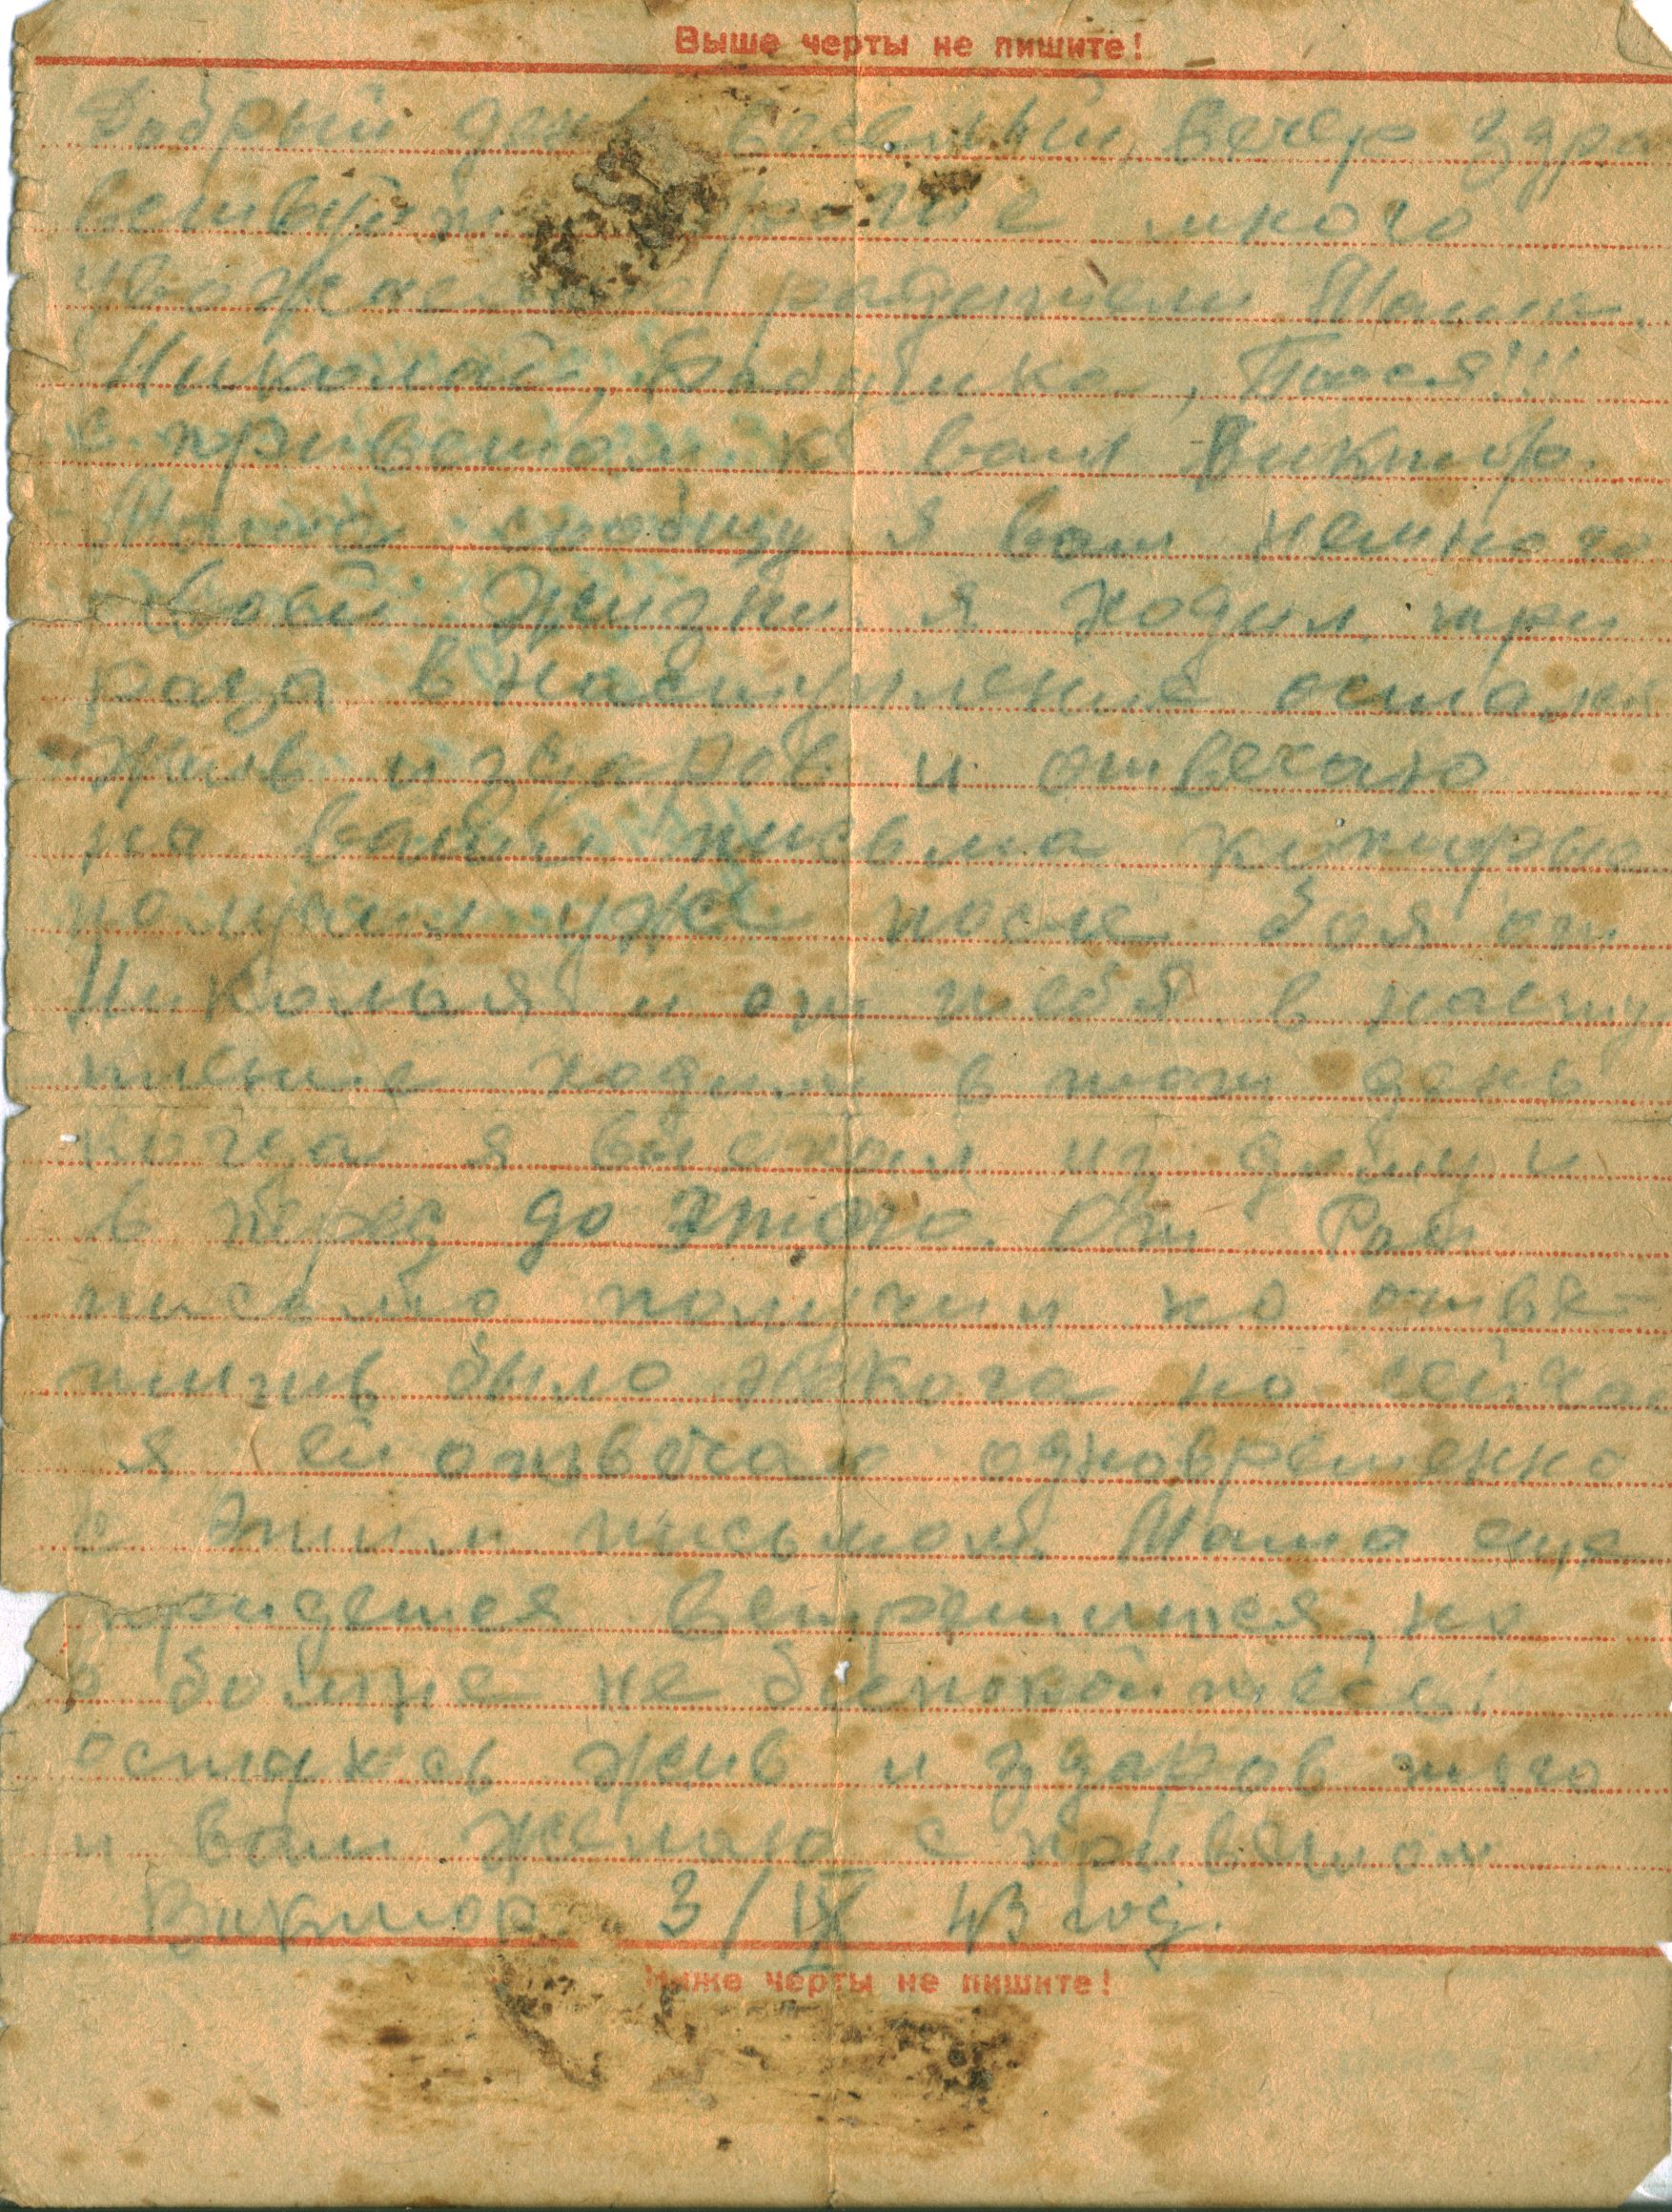 Выше черты не пишите!
Добрый день веселый вечер здра
вствуйте много
родители Маша
Николай, , Тося!!!
с приветом к вам Виктор.
сообщу я вам немного
о своей жизни. я ходил три
раза в наступление остался
жив и здоров и отвечаю
на ваши письма которые
получил уже после боя от
Николая и от тебя. в насту
пление ходили в тот день
когда я
в перед до этого. От Раи
письмо получил но отве-
тить было некога но сейчас
я ей отвечаю одновременно
с этим письмом. Мама еще
придется встретится, но
а больше не беспокойтесь:
остаюсь жив и здаров того
и вам желаю с приветом
Виктор. 3/IX 43 год.
Ниже черты не пишите!